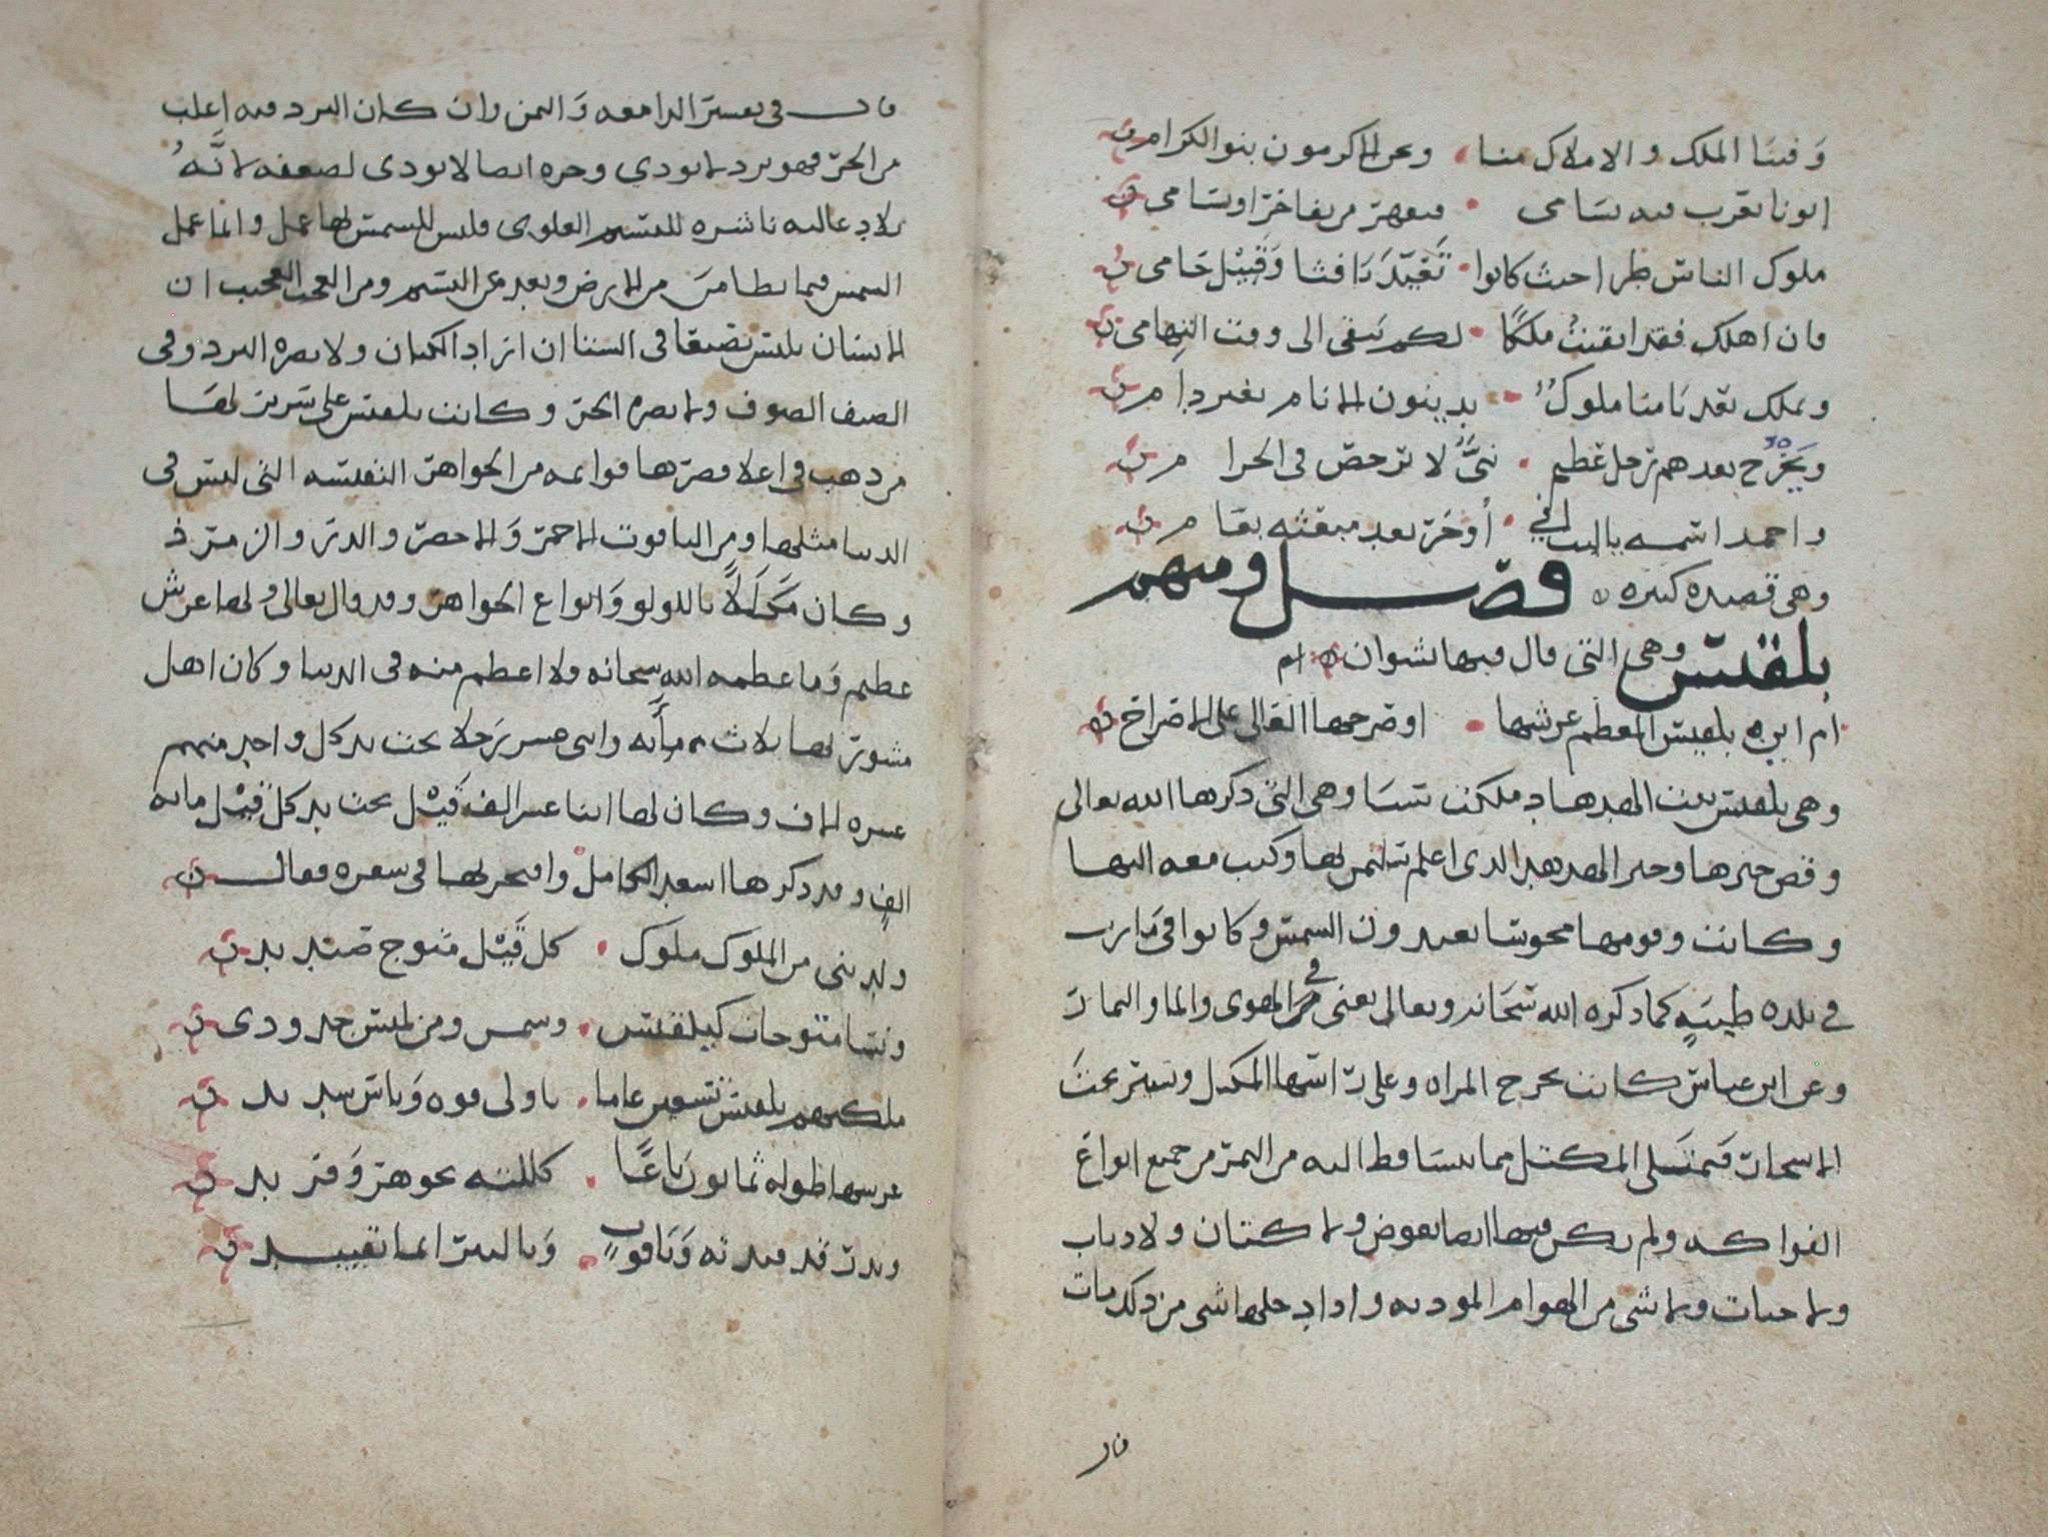 وفينا الملك والاملاك منا ونحن الاكرمون بنو الكرام
ابونا يعرب فيه نسامى فيقهر من يفاخر او يسامى
ملوك الناس طرا حيث كانوا وقيل حامى
فان اهلك فقد ابقيت ملكا لكم يبقى الى وقت التهامى
ويملك بعدنا منا ملوك يدينون الانام بغير ذام
ويخرج بعدهم رجل عظيم نبى لا يرخص فى الحرام
واحمد اسمه ياليت انى أوخر بعد مبعثه بعام
وهى قصيده كبيره فصل ومنهم
بلقيس وهى التى قال فيها نشوان ام
ام اين بلقيس المعظم عرشها او صرحها العالى على الاصراح
وهى بلقيس بنت الهدهاد ملكت سبا وهى التى ذكرها الله تعالى
وقص خبرها وخبر الهدهد الذى اعلم سليمن لها وكتب معه اليها
وكانت وقومها مجوسا يعبدون الشمس وكانوا فى مارب
فى بلده طيبه كما ذكره الله سبحانه وتعالى يعنى فى الهوى والما والثمار
وعن ابن عباس كانت تخرج المراه وعلى راسها المكتل وتسير تحت
الاشجار فيمتلى المكتل مما يتساقط اليه من الثمر من جميع انواع
الفواكه ولم يكن فيها ايضا بعوض ولا كتان ولا ذباب
ولا حيات ولا شى من الهوام الموذيه واذا دخلها شى من ذلك مات
قال
قال فى تفسير الدامغه واليمن وان كان البرد فيه اغلب
من الحر فهو برد لا يوذي وحره ايضا لا يوذى لضعفه لانه
بلاد عاليه ناشره للنسيم العلوى فليس للشمس لها عمل وانما عمل
الشمس فيما تطامن من الارض وبعد عن النسيم ومن العجب العجيب ان
الانسان يلبس بصنعا فى الشتا ان اراد الكتان ولا يضره البرد وفى
الصيف الصوف ولا يضره الحر وكانت بلقيس على سرير لها
من ذهب فى اعلا قصرها قوايمه من الجواهر النفيسه التى ليس فى
الدنيا مثلها ومن الياقوت الاحمر والاخضر والدر والزمرذ
وكان مكللا باللولو وانواع الجواهر وقد قال تعالى ولها عرش
عظيم وما عظمه الله سبحانه ولا اعظم منه فى الدنيا وكان اهل
مشورتها ثلاث مأيه واثنى عشر رجلا تحت يد كل واحد منهم
عشره الاف وكان لها اثنا عشر الف قيل تحت يد كل قيل مايه
الف وقد ذكرها اسعد الكامل وافتخر لها فى شعره فقال
ولدتنى من الملوك ملوك كل قيل متوج صنديد
ونسا متوجات كبلقيس وشمس ومن لميس جدودى
ملكتهم بلقيس تسعين عاما باولى قوه وباس شديد
عرشها طوله ثمانون باعا كللته بجوهر وفريد
وبدر قد قيدته وياقوت وبالتبر ايما تقييد